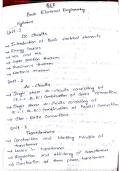 BEE
Basic Electrical Engineering
Syllabus
Unit - 1
DC Circuits
→ Introduction of Basic electrical elements
→ Energy Sources
→ KCL and KVL
→ Super position theorem
→ Thevenins theorem
→ Nortons theorem
Unit - 2
Ac - Circuits
→ Single phase ac circuits consisting of
Combination of Series Connection
→ Single phase ac circuits consisting of
Combination of
→ Star - Delta Connections
Unit - 3
Transformers
→ Construction and Working Principle of
transformer
→ Losses in transformer
→ Regulation and efficiency of transformer
→ Construction of three phase transformer